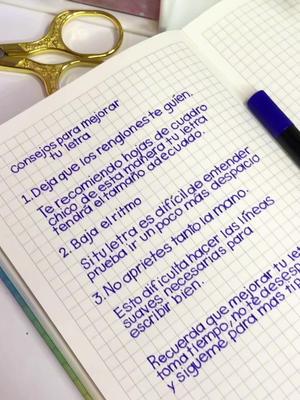 Consejos para mejorar
tu letra
1. Deja que los renglones te guíen.
Te recomiendo hojas de cuadro
chico de esta manera tu letra
tendrá el tamaño adecuado.
2. Baja el ritmo
Si tu letra es difícil de entender
prueba ir un poco más despacio
3. No aprietes tanto la mano.
Esto dificulta hacer las líneas
suaves necesarias para
escribir bien.
Recuerda que mejorar tu
toma tiempo, no te
y sígueme para más